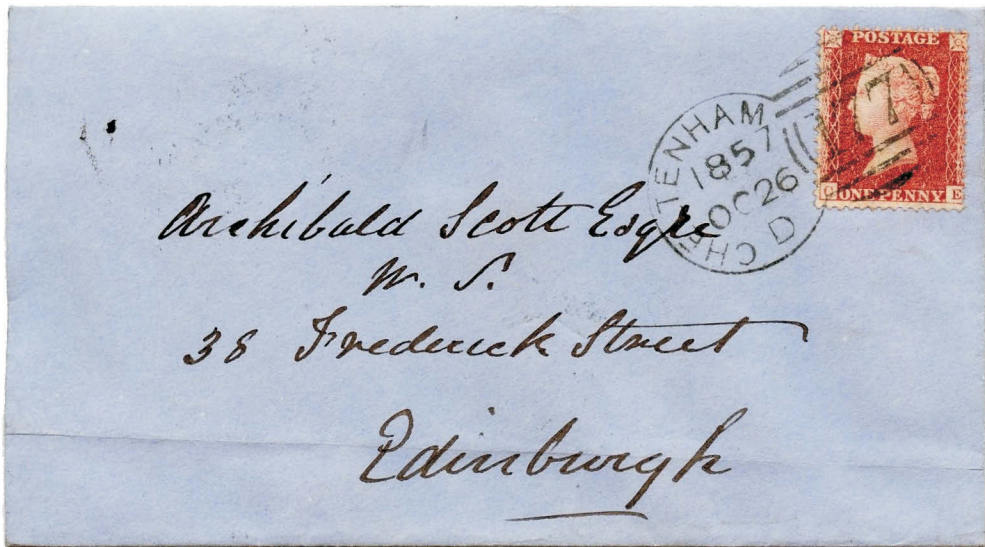 POSTAGE
177
ONE PENNY
E
CHELTENHAM
1857
OC 26
D
Archibald Scott Esqre
W. S.
38 Frederick Street
Edinburgh